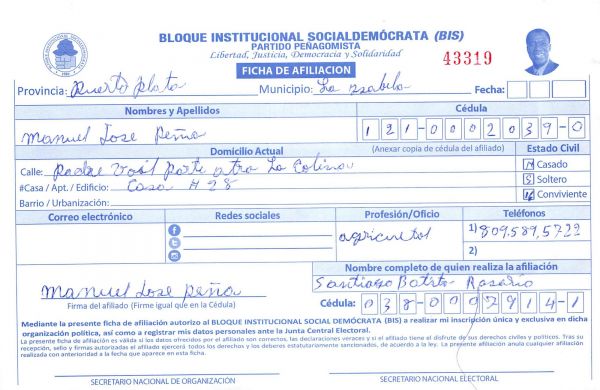 BLOQUE INSTITUCIONAL SOCIALDEMÓCRATA (BIS)
PARTIDO PEÑAGOMISTA
Libertad, Justicia, Democracia y Solidaridad
43319
FICHA DE AFILIACION
Provincia: Puerto Plata Municipio: La Isabela Fecha:
Nombres y Apellidos Cédula
Manuel Jose Peña 121-0002039-0
Domicilio Actual (Anexar copia de cédula del afiliado) Estado Civil
Calle: Padre Parte atra La Colina Casado
#Casa / Apt. / Edificio: Casa # 28 S Soltero
Barrio / Urbanización: Conviviente
Correo electrónico Redes sociales Profesión/Oficio Teléfonos
agricultol 1) 809,589,5722
2)
Nombre completo de quien realiza la afiliación
Manuel Jose Peña Santiago Batista Rosario
Firma del afiliado (Firme igual que en la Cédula) Cédula: 038-0002914-1
Mediante la presente ficha de afiliación autorizo al BLOQUE INSTITUCIONAL SOCIAL DEMÓCRATA (BIS) a realizar mi inscripción única y exclusiva en dicha
organización política, así como a registrar mis datos personales ante la Junta Central Electoral.
La presente ficha de afiliación es válida si los datos ofrecidos por el afiliado son correctos, las declaraciones veraces y si el afiliado tiene el disfrute de sus derechos civiles y políticos. Tras su
recepción, sello y firmas autorizadas el afiliado ejercerá todos los derechos y los deberes estatutariamente sancionados, de acuerdo a la ley. La presente afiliación anula cualquier afiliación
realizada con anterioridad a la fecha que aparece en esta ficha.
SECRETARIO NACIONAL DE ORGANIZACIÓN SECRETARIO NACIONAL ELECTORAL